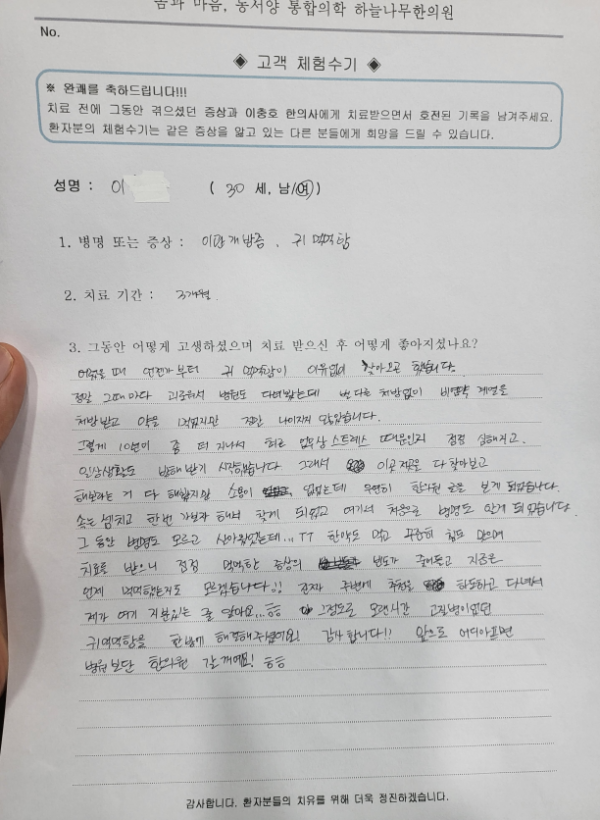 몸과 마음, 동서양 통합의학 하늘나무한의원
No.
◈ 고객 체험수기 ◈
※ 완쾌를 축하드립니다!!!
치료 전에 그동안 겪으셨던 증상과 이충호 한의사에게 치료받으면서 호전된 기록을 남겨주세요.
환자분의 체험수기는 같은 증상을 앓고 있는 다른 분들에게 희망을 드릴 수 있습니다.
성명 : 이 ( 30 세, 남/여 )
1. 병명 또는 증상 : 이관개방증, 귀 먹먹함
2. 치료 기간 : 3개월.
3. 그동안 어떻게 고생하셨으며 치료 받으신 후 어떻게 좋아지셨나요?
어렸을 때 언젠가부터 귀 먹먹함이 이유없이 찾아오곤 했습니다.
정말 그때마다 괴로워서 병원도 다녀봤는데 별 다른 처방없이 비염약 계열을
처방받고 약을 먹었지만 전혀 나아지지 않았습니다.
그렇게 10년이 좀 더 지나서 최근 업무상 스트레스 때문인지 점점 심해지고.
일상생활도 방해받기 시작했습니다 그래서 이곳저곳을 다 찾아보고
해보라는 거 다 해봤지만 소용이 없었는데 우연히 한의원 글을 보게 되었습니다.
속는 셈치고 한번 가보자 해서 찾게 되었고 여기서 처음으로 병명도 알게 되었습니다.
그 동안 병명도 모르고 살아왔었는데...ㅠㅠ 한약도 먹고 꾸준히 침도 맞으며
치료를 받으니 점점 먹먹한 증상의 빈도가 줄어들고 지금은
언제 먹먹했는지도 모르겠습니다!! 진짜 주변에 추천을 하도하고 다녀서
제가 여기 지분있는 줄 알아요...ㅎㅎ 그정도로 오랜시간 고질병이였던
귀먹먹함을 한방에 해결해주셨어요! 감사합니다!! 앞으로 어디아프면
병원보단 한의원 갈꺼에요! ㅎㅎ
감사합니다. 환자분들의 치유를 위해 더욱 정진하겠습니다.